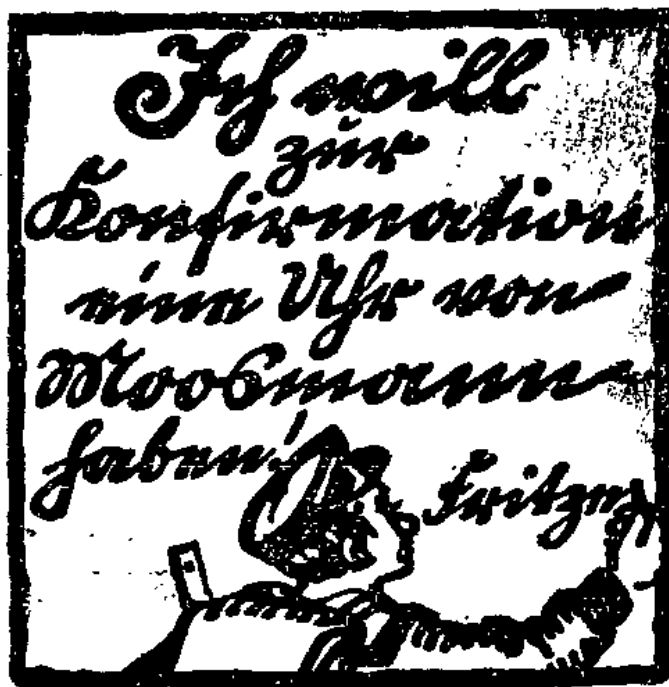 Ich will
zur
Konfirmation
eine Uhr von
Moosmann
haben!
Fritze